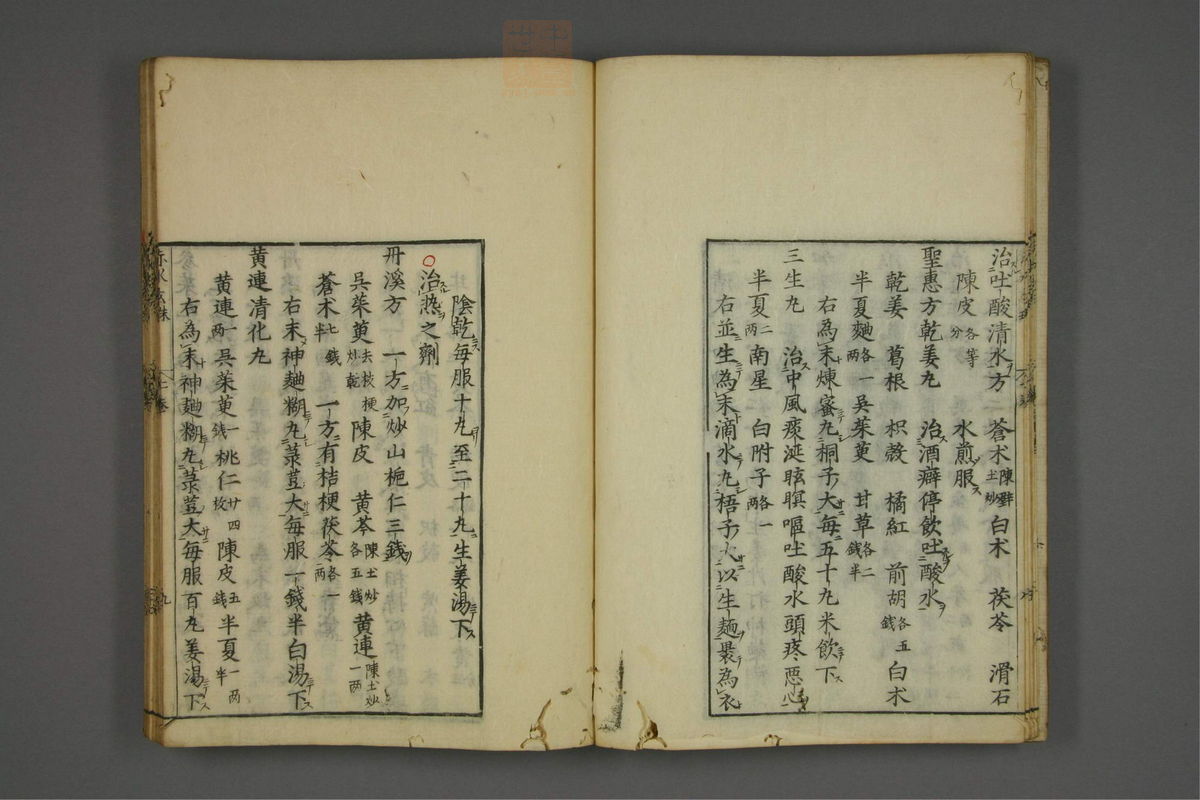 治吐酸清水方 蒼术陳壁土炒白术 茯苓 滑石
陳皮各等分 水煎服
聖惠方乾姜丸 治酒癖停飲吐酸水
乾姜 葛根 枳殼 橘紅 前胡各五錢 白术
半夏麯各一两 吳茱萸 甘草各二錢半
右為末煉蜜丸桐子大每五十丸米飲下
三生丸 治中風痰涎眩瞑嘔吐酸水頭疼惡心
半夏二两 南星 白附子各一两
右並生為末滴水丸梧子大以生麵衮為衣
陰乾每服十丸至二十丸生姜湯下
○治热之劑
丹溪方 一方加炒山梔仁三錢
吳茱萸去枝梗炒乾 陳皮 黄芩陳土炒各五錢 黄連陳土炒一两
蒼术七錢半 一方有桔梗茯苓各一两
右末神麯糊丸菉荳大每服一錢半白湯下
黄連清化丸
黄連一两 吳茱萸一錢 桃仁廿四枚 陳皮五錢 半夏一两半
右為末神麯糊丸菉荳大每服百丸姜湯下